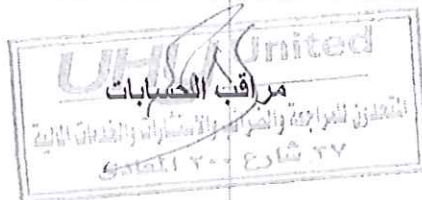 UHY United
مراقب الحسابات
المتحدون للمراجعة والضرائب والاستشارات والخدمات المالية
٢٧ شارع ٢٠٠ المعادى